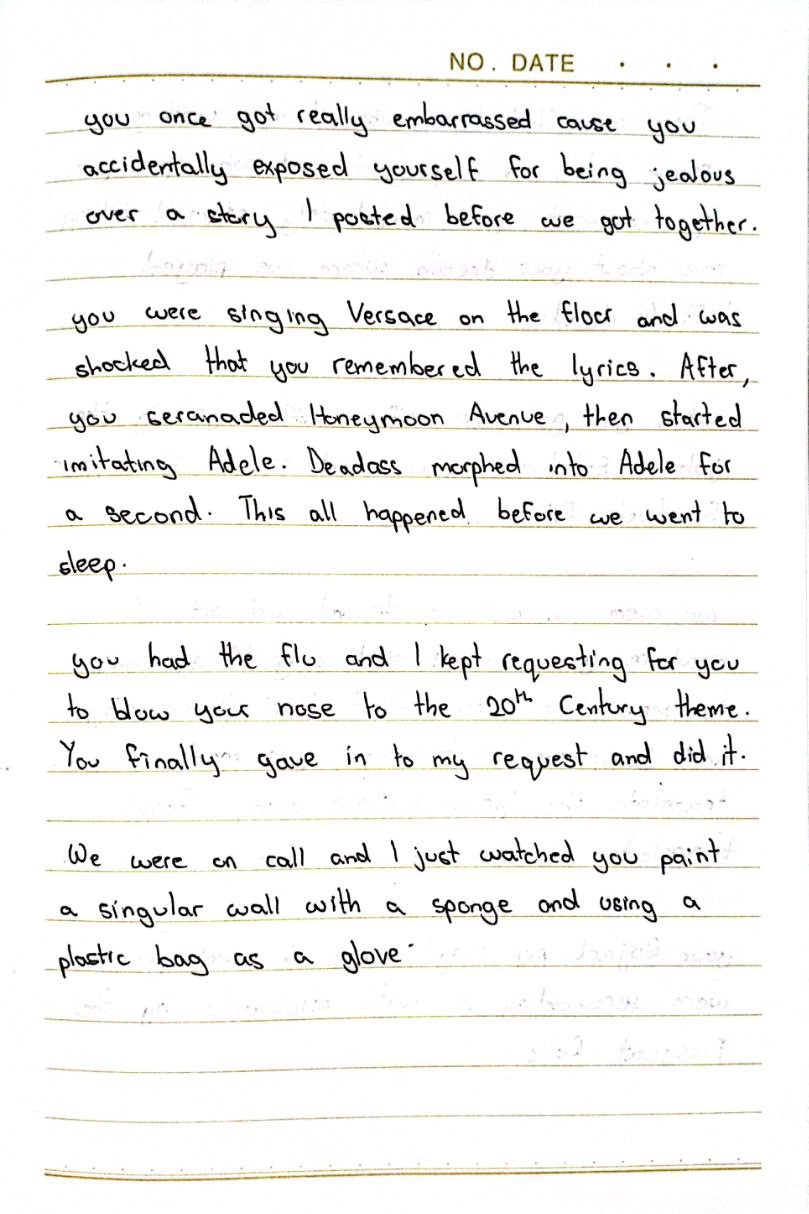 NO. DATE . . .
you once got really embarrassed cause you
accidentally exposed yourself for being jealous
over a story I posted before we got together.
you were singing Versace on the floor and was
shocked that you remembered the lyrics. After,
you seranaded Honeymoon Avenue, then started
imitating Adele. Deadass morphed into Adele for
a second. This all happened before we went to
sleep.
you had the flu and I kept requesting for you
to blow your nose to the 20th Century theme.
You finally gave in to my request and did it.
We were on call and I just watched you paint
a singular wall with a sponge and using a
plastic bag as a glove.